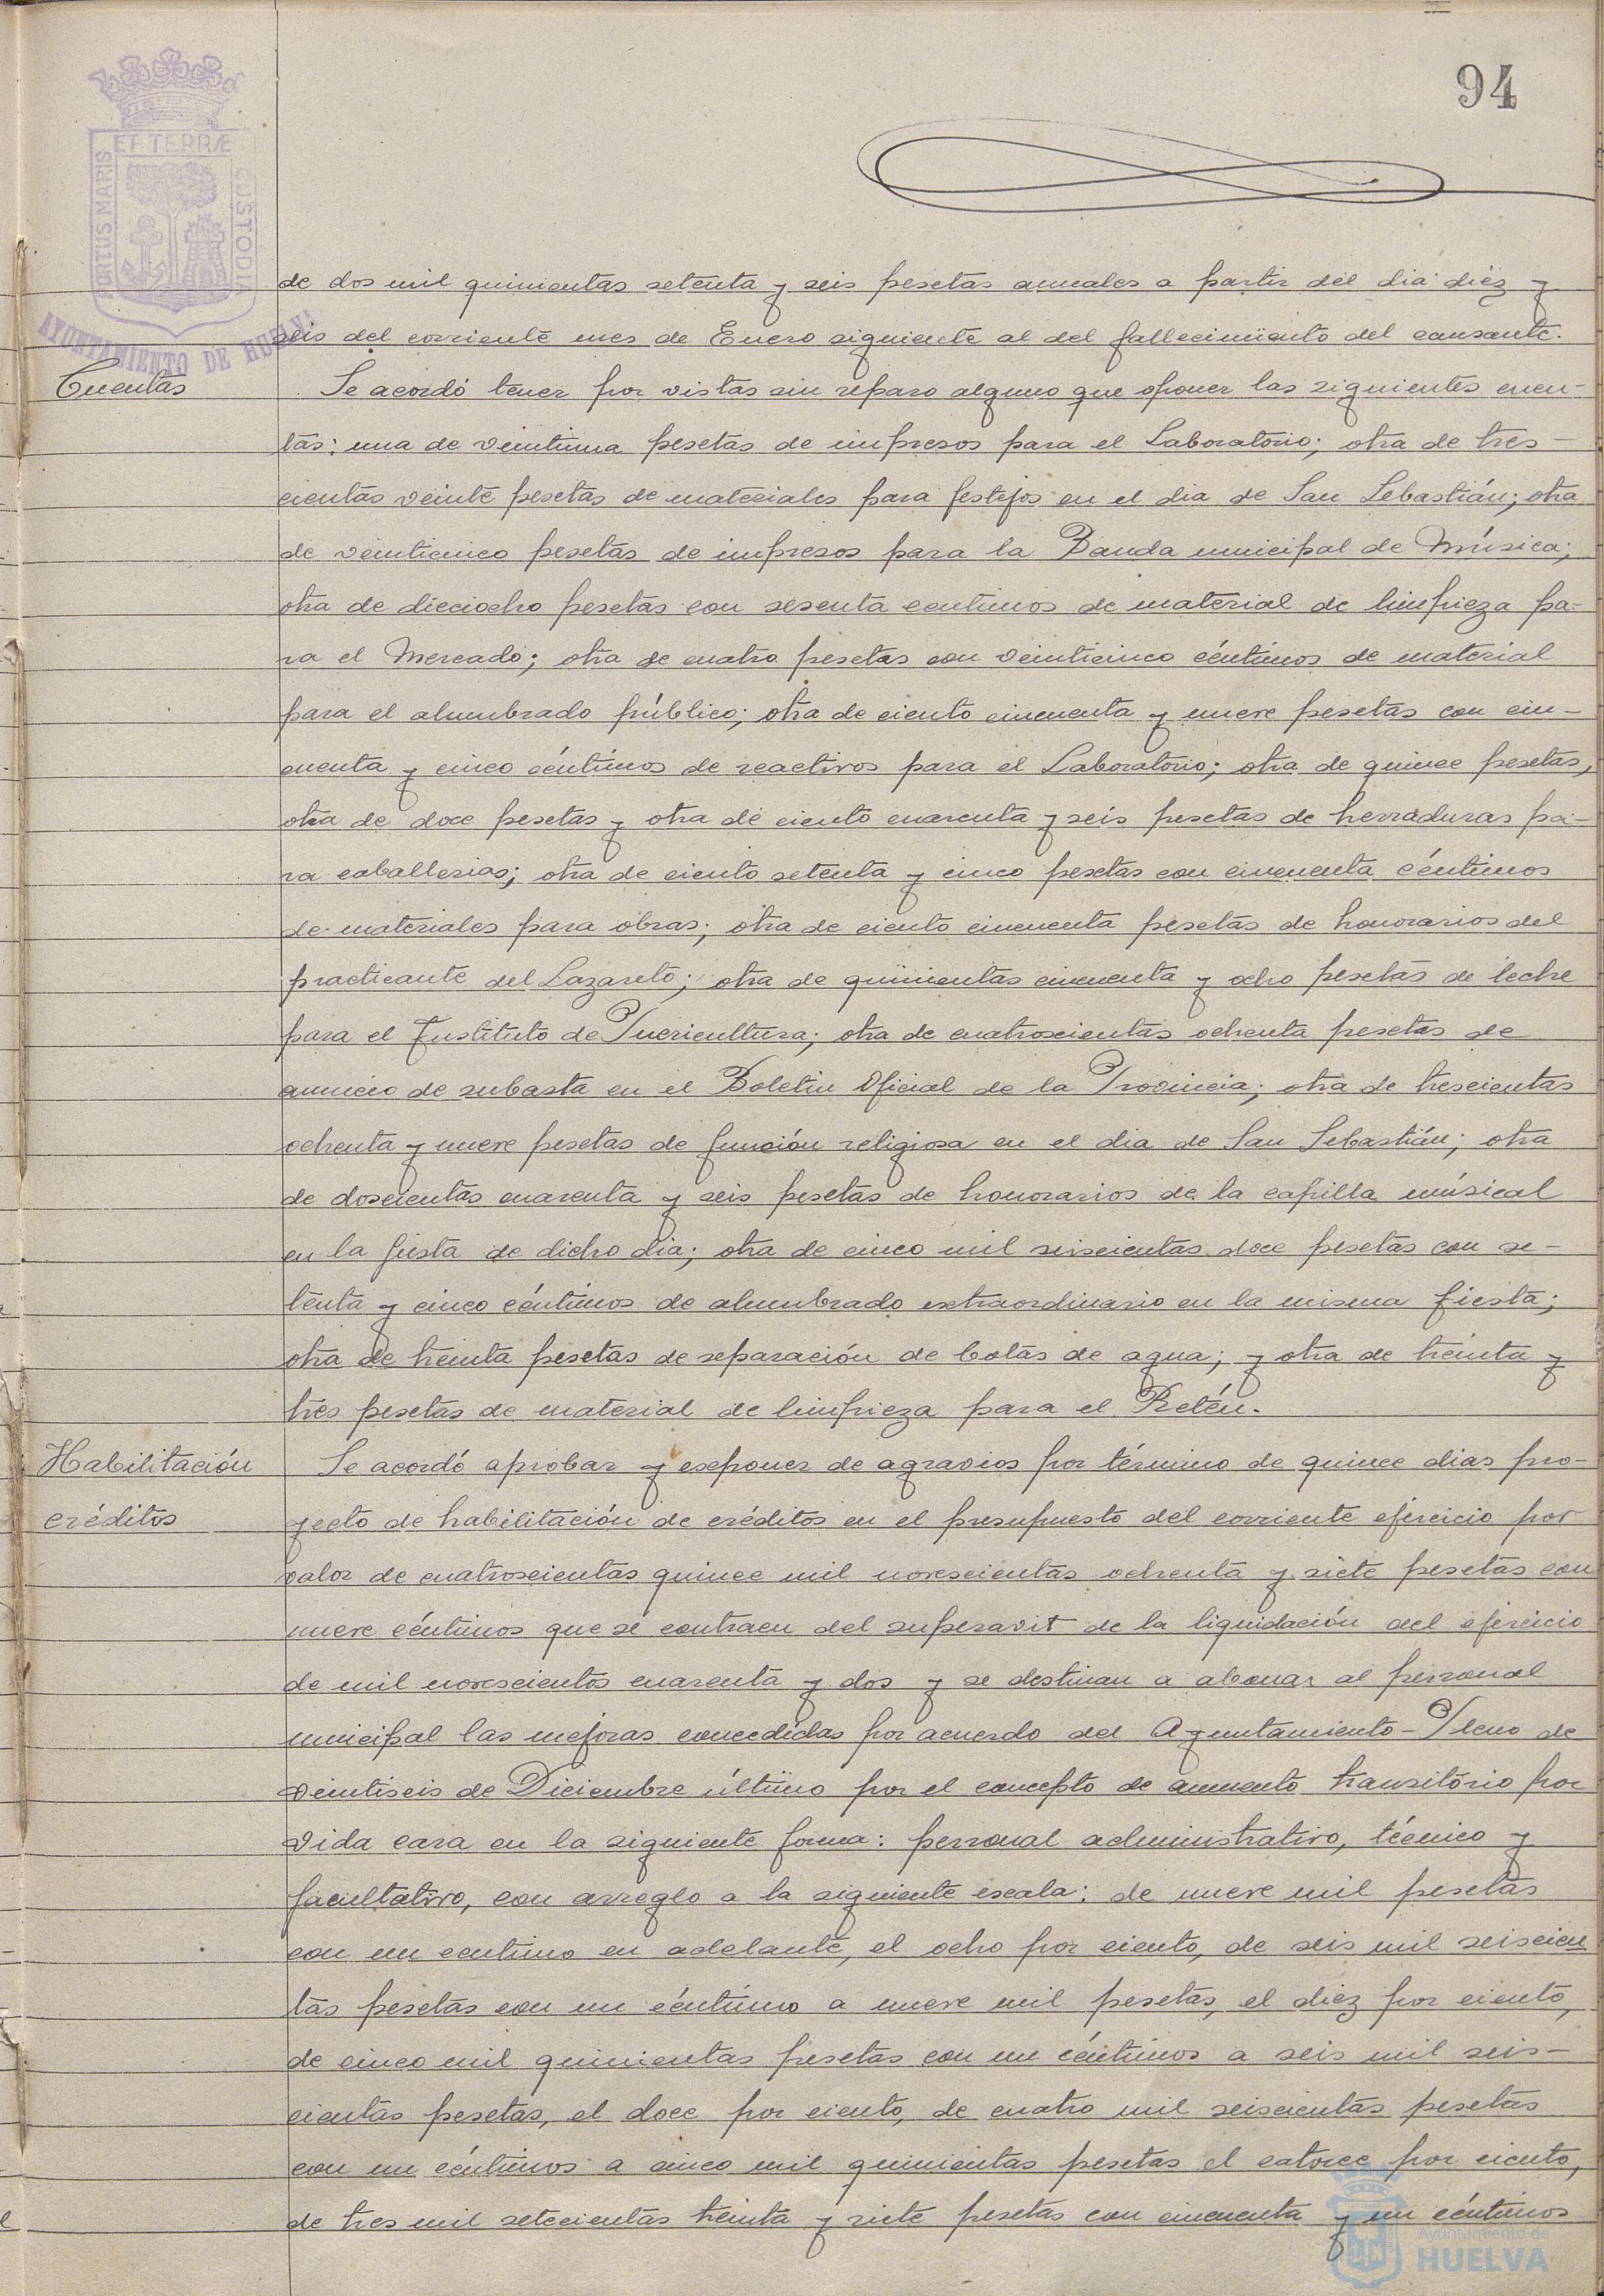 94
PORTUS MARIS ET TERRÆ CUSTODIA
AYUNTAMIENTO DE HUELVA
de dos mil quinientas setenta y seis pesetas anuales a partir del dia diéz y
seis del corriente mes de Enero siguiente al del fallecimiento del causante.
Cuentas
Se acordó tener por vistas sin reparo alguno que oponer las siguientes cuen-
tas: una de veintiuna pesetas de impresos para el Laboratorio; otra de tres-
cientas veinte pesetas de materiales para festejos en el dia de San Sebastián; otra
de veinticinco pesetas de impresos para la Banda municipal de Música;
otra de dieciocho pesetas con sesenta centimos de material de limpieza pa-
ra el Mercado; otra de cuatro pesetas con veinticinco céntimos de material
para el alumbrado público; otra de ciento cincuenta y nueve pesetas con cin-
cuenta y cinco céntimos de reactivos para el Laboratorio; otra de quince pesetas,
otra de doce pesetas y otra de ciento cuarenta y seis pesetas de herraduras pa-
ra caballerias; otra de ciento setenta y cinco pesetas con cincuenta céntimos
de materiales para obras; otra de ciento cincuenta pesetas de honorarios del
practicante del Lazareto; otra de quinientas cincuenta y ocho pesetas de leche
para el Instituto de Puericultura; otra de cuatroscientas ochenta pesetas de
anuncio de subasta en el Boletin Oficial de la Provincia; otra de trescientas
ochenta y nueve pesetas de función religiosa en el dia de San Sebastián; otra
de doscientas cuarenta y seis pesetas de honorarios de la capilla músical
en la fiesta de dicho dia; otra de cinco mil seiscientas doce pesetas con se-
tenta y cinco céntimos de alumbrado extraordinario en la misma fiesta;
otra de treinta pesetas de reparación de botas de agua; y otra de treinta y
tres pesetas de material de limpieza para el Retén.
Habilitación
créditos
Se acordó aprobar y exponer de agravios por término de quince dias pro-
yecto de habilitación de créditos en el presupuesto del corriente ejercicio por
valor de cuatroscientas quince mil novescientas ochenta y siete pesetas con
nueve céntimos que se contraen del superavit de la liquidación del ejercicio
de mil novescientos cuarenta y dos y se destinan a abonar al personal
municipal las mejoras concedidas por acuerdo del Ayuntamiento-Pleno de
veintiseis de Diciembre último por el concepto de aumento transitório por
vida cara en la siguiente forma: personal administrativo, técnico y
facultativo, con arreglo a la siguiente escala: de nueve mil pesetas
con un centimo en adelante, el ocho por ciento, de seis mil seiscien
tas pesetas con un céntimo a nueve mil pesetas, el diez por ciento,
de cinco mil quinientas pesetas con un céntimos a seis mil seis-
cientas pesetas, el doce por ciento, de cuatro mil seiscientas pesetas
con un céntimos a cinco mil quinientas pesetas el catorce por ciento,
de tres mil setecientas treinta y siete pesetas con cincuenta y un céntimos
Ayuntamiento de
HUELVA